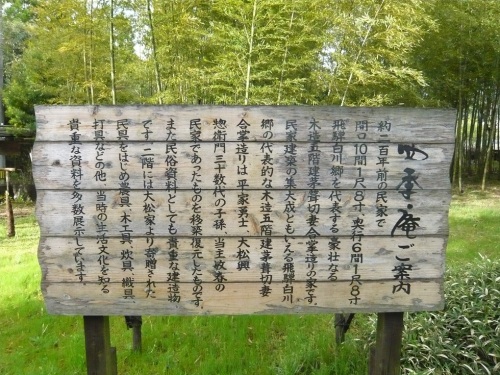 四季・庵ご案内
約二百年前の民家で
間口10間1尺8寸・奥行6間1尺8寸
飛騨白川郷を代表する豪壮なる
木造五階建茅葺切妻合掌造りの家です。
民家建築の集大成ともいえる飛騨白川
郷の代表的な木造五階建茅葺切妻
合掌造りは平家勇士、大松興
惣衛門三十数代の子孫、当主敏一家の
民家であったものを移築復元したものです。
また民俗資料としても貴重な建造物
です。二階には大松家より寄贈された
民具をはじめ農具、木工具、炊具、織具、
打具などの他、当時の生活文化を知る
貴重な資料を多数展示しています。